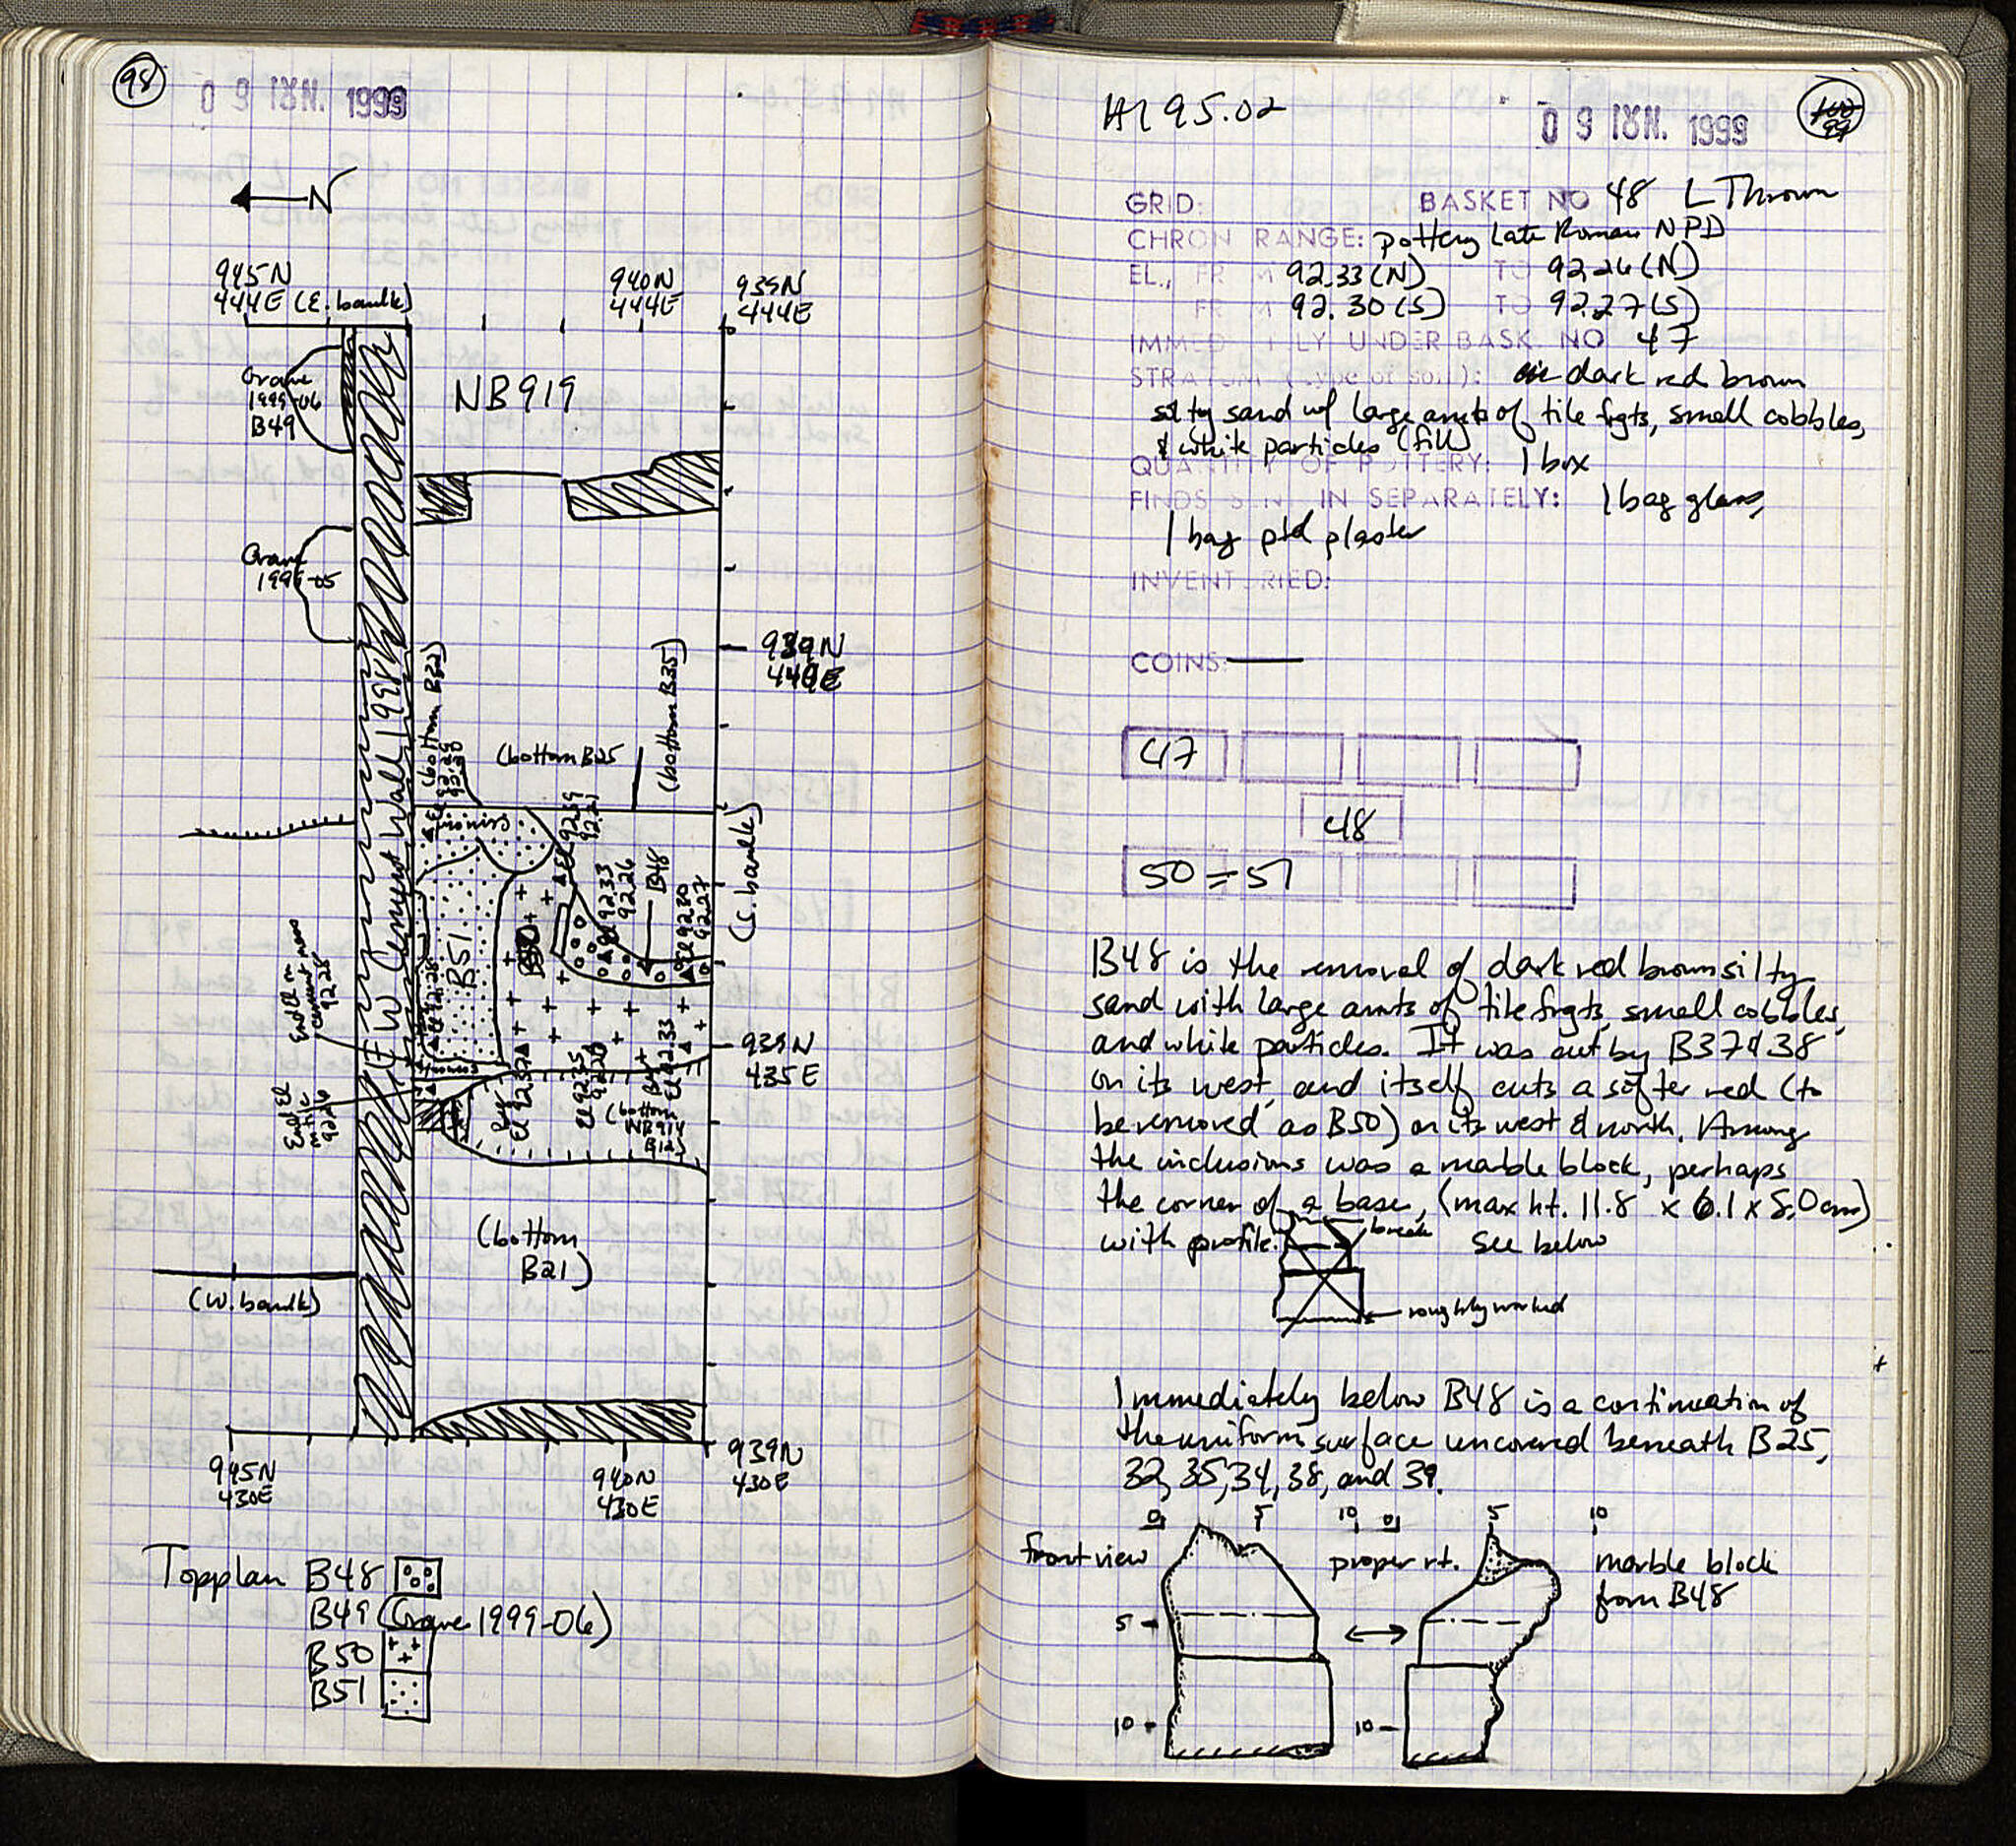 98
09 ΙΟΥΝ. 1999
N
945N
444E (E. baulk)
940N
444E
939N
444E
Grave
1999-06
B49
NB919
Grave
1999-05
E-W Cement Wall 1998
(bottom B32)
(bottom B25
(bottom B35)
939N
440E
92.20
El 92.39
92.21
El 92.33
92.26
B48
El 92.30
92.27
(S. baulk)
B51
B50
End El in
cement mess
92.28
End El
in tile
92.26
El 92.35
92.20
El 92.33
(bottom
NB914
B12)
939N
435E
(bottom
B21)
(W. baulk)
945N
430E
940N
430E
939N
430E
Topplan B48
B49 (Grave 1999-06)
B50
B51
A1 95.02
09 ΙΟΥΝ. 1999
99
GRID: BASKET NO 48 L Thrown
CHRON RANGE: pottery Late Roman NPD
EL., FROM 92.33 (N) TO 92.26 (N)
FROM 92.30 (S) TO 92.27 (S)
IMMEDIATELY UNDER BASK. NO 47
STRATUM (type of soil): dark red brown
silty sand w/ large amts of tile frgts, small cobbles,
& white particles (fill)
QUANTITY OF POTTERY: 1 box
FINDS SENT IN SEPARATELY: 1 bag glass,
1 bag ptd plaster
INVENTORIED:
COINS: —
47
48
50 = 51
B48 is the removal of dark red brown silty
sand with large amts of tile frgts, small cobbles,
and white particles. It was cut by B37 & 38
on its west, and itself cuts a softer red (to
be removed as B50) on its west & north. Among
the inclusions was a marble block, perhaps
the corner of a base, (max ht. 11.8 x 6.1 x 8.0 cm)
with profile. break see below
roughly worked
Immediately below B48 is a continuation of
the uniform surface uncovered beneath B25,
32, 35, 34, 38, and 39.
0 5 10 0 5 10
front view proper rt. marble block
from B48
5
10 10